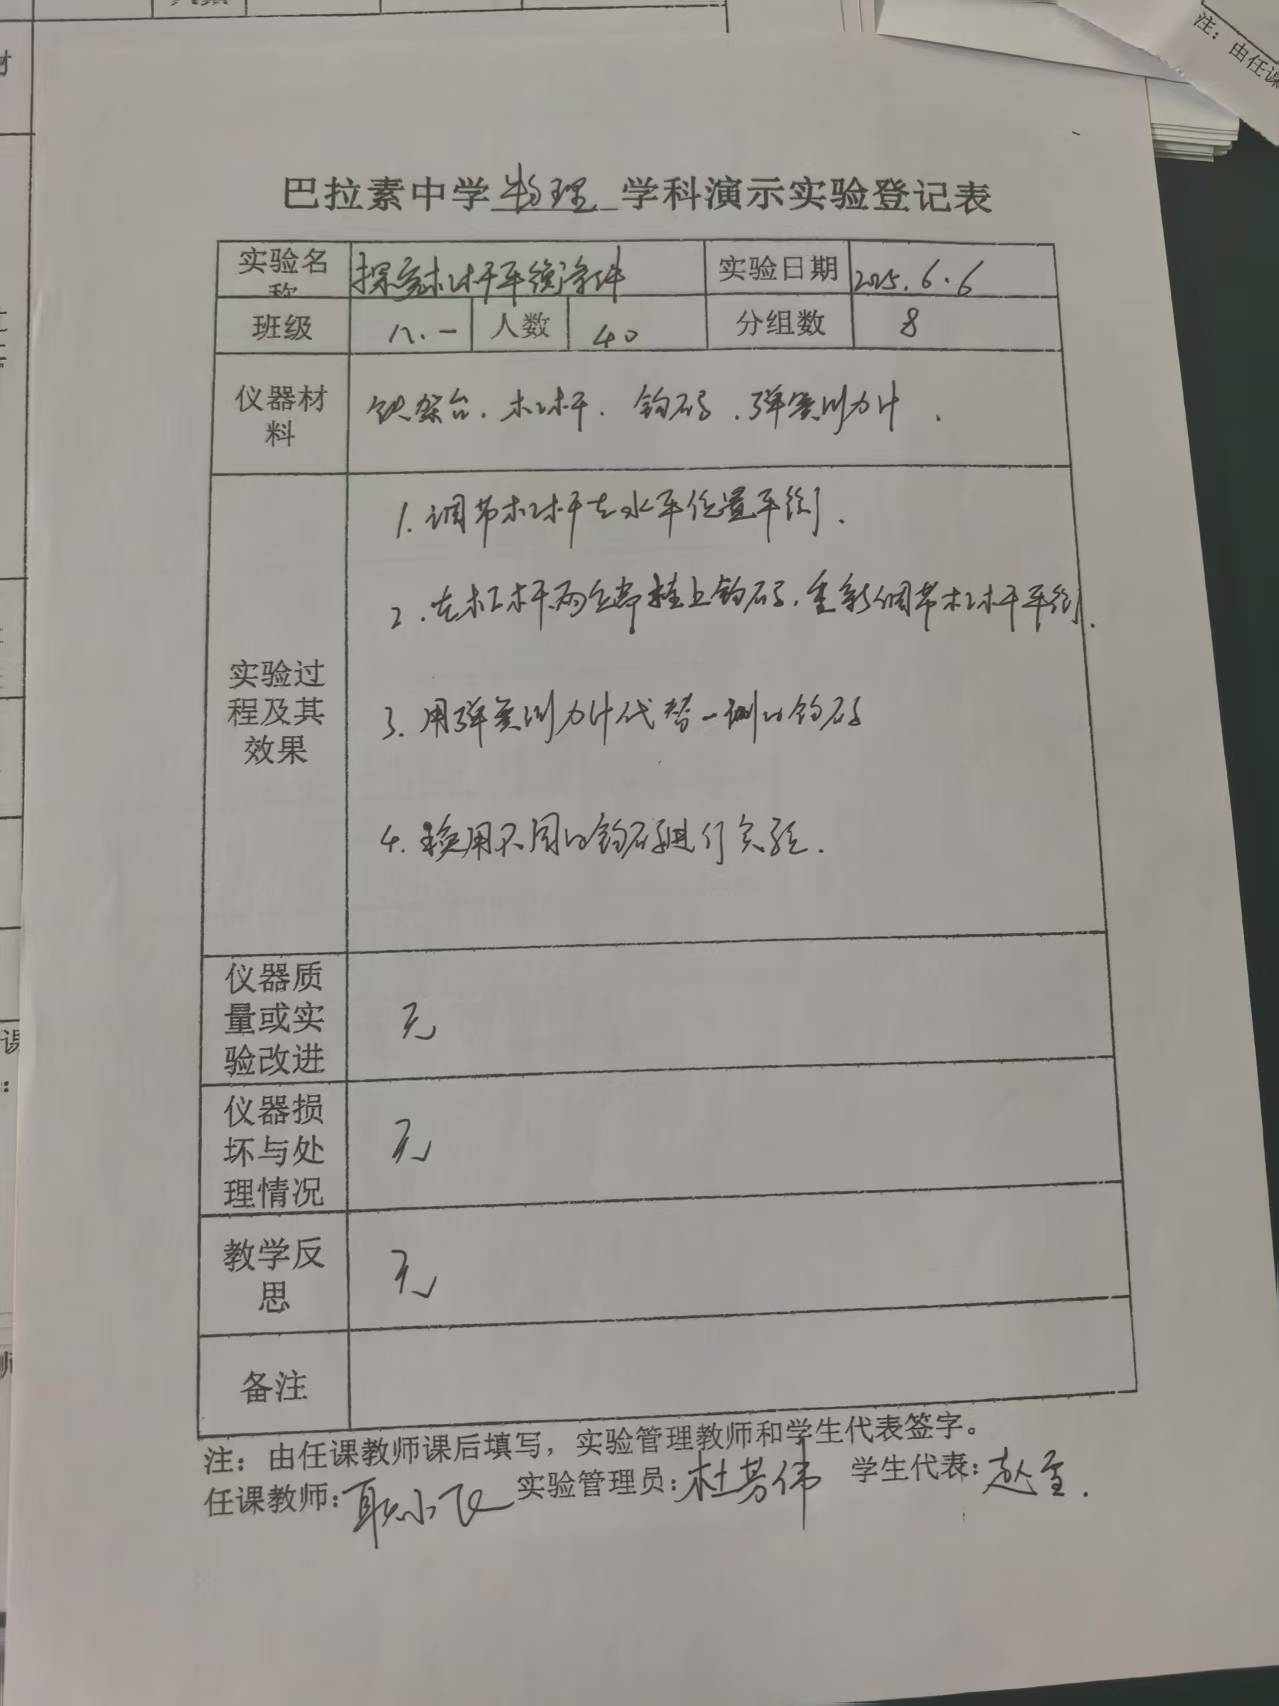 注：由任课
巴拉素中学 物理 学科演示实验登记表
实验名称 探究杠杆平衡条件 实验日期 2025.6.6
班级 八.一 人数 40 分组数 8
仪器材料 铁架台、杠杆、钩码、弹簧测力计.
实验过程及其效果
1. 调节杠杆在水平位置平衡.
2. 在杠杆两边都挂上钩码，重新调节杠杆平衡.
3. 用弹簧测力计代替一侧的钩码
4. 换用不同的钩码进行实验.
仪器质量或实验改进 无
仪器损坏与处理情况 无
教学反思 无
备注
注：由任课教师课后填写，实验管理教师和学生代表签字。
任课教师：耿小飞 实验管理员：杜芳伟 学生代表：赵